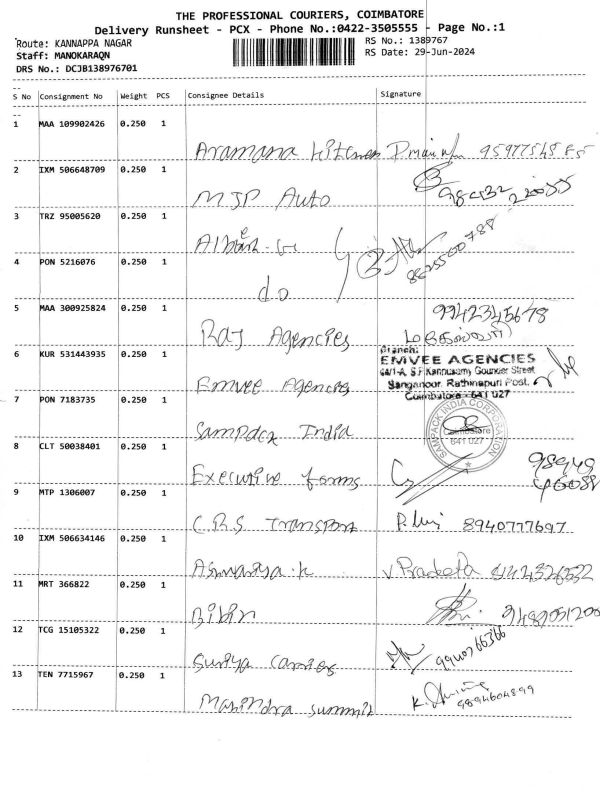 THE PROFESSIONAL COURIERS, COIMBATORE
Delivery Runsheet - PCX - Phone No.:0422-3505555 - Page No.:1
Route: KANNAPPA NAGAR RS No.: 1389767
Staff: MANOKARAQN RS Date: 29-Jun-2024
DRS No.: DCJB138976701
S No Consignment No Weight PCS Consignee Details Signature
1 MAA 109902426 0.250 1
Aramana
2 IXM 506648709 0.250 1
MJP Auto
3 TRZ 95005620 0.250 1
4 PON 5216076 0.250 1
do
5 MAA 300925824 0.250 1 9942345678
Raj Agencies
6 KUR 531443935 0.250 1 Branch:
EMVEE AGENCIES
64/1-A, S.F. Kannusamy Gounder Street
Sanganoor, Rathinapuri Post,
Coimbatore - 641 027
Emvee Agencies
7 PON 7183735 0.250 1
Sampack India SAMPACK INDIA CORPORATION
Coimbatore
641 027
8 CLT 50038401 0.250 1
Executive forms
9 MTP 1306007 0.250 1
C.R.S Transport 8940777697
10 IXM 506634146 0.250 1
v Pradeepa
11 MRT 366822 0.250 1
Bibin
12 TCG 15105322 0.250 1 9940766366
Suriya Carriers
13 TEN 7715967 0.250 1 9894604899
Mahindra summit